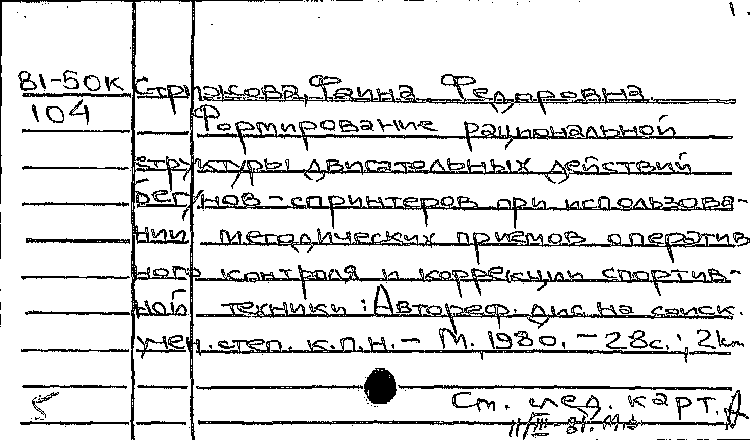 1.
81-50к Стрижкова, Фаина Федоровна.
104 Формирование рациональной
структуры двигательных действий
бегунов-спринтеров при использова-
нии методических приемов оператив
ного контроля и коррекции спортив-
ной техники: Автореф. дис. на соиск.
учен. степ. к.п.н. - М. 1980. - 28с.;
См. след. карт.
5